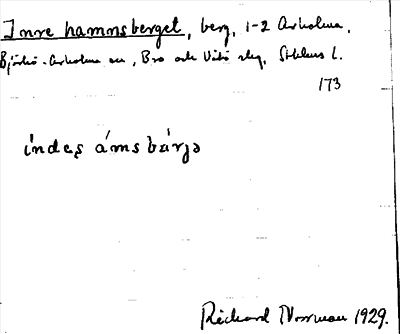 Inre hamnsberget, berg, 1-2 Arholma,
Björkö-Arholma sn, Bro och Vätö skg, Sthlms l.
173
índeş ámsbárjə
Rickard Norrman 1929.